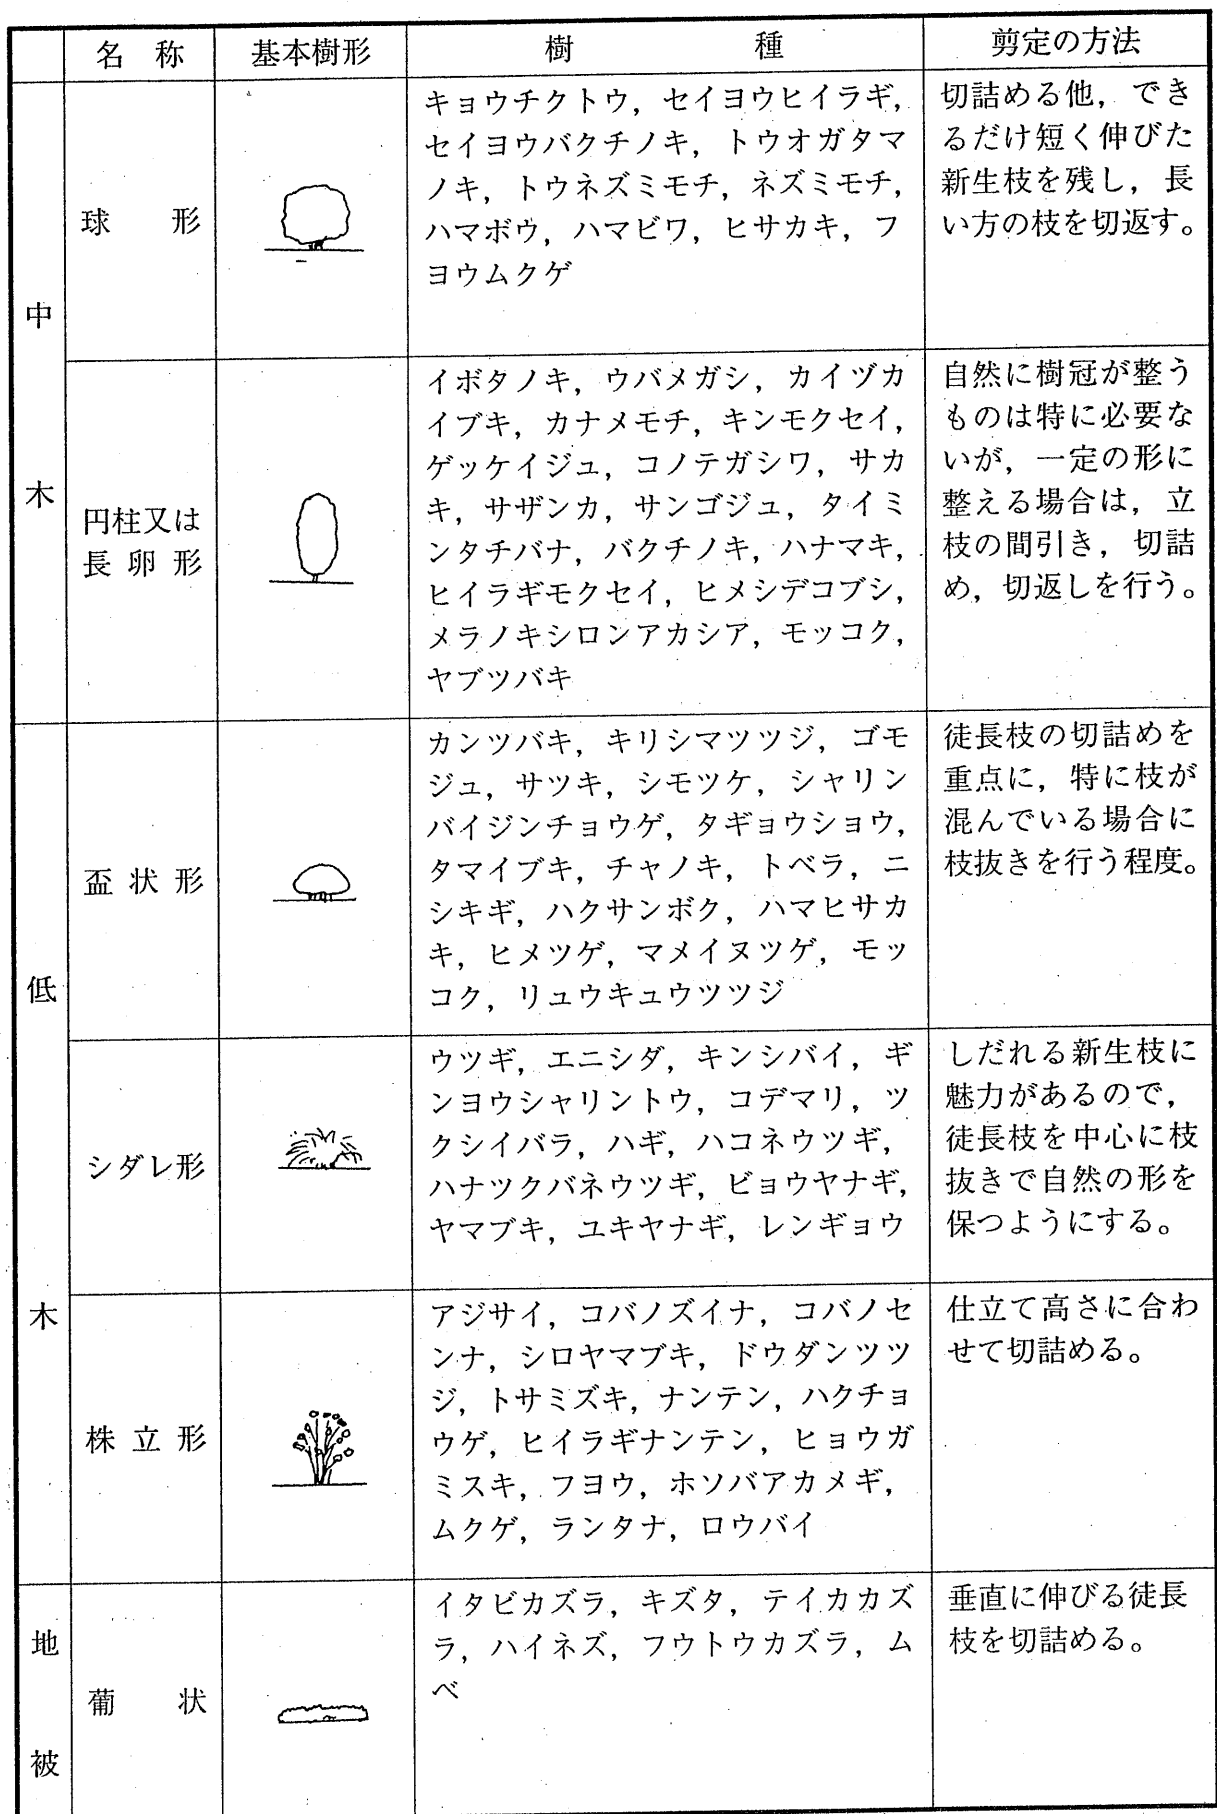 名 称 基本樹形 樹 種 剪定の方法
中 木
球 形
キョウチクトウ，セイヨウヒイラギ，
セイヨウバクチノキ，トウオガタマ
ノキ，トウネズミモチ，ネズミモチ，
ハマボウ，ハマビワ，ヒサカキ，フ
ヨウムクゲ
切詰める他，でき
るだけ短く伸びた
新生枝を残し，長
い方の枝を切返す。
円柱又は
長 卵 形
イボタノキ，ウバメガシ，カイヅカ
イブキ，カナメモチ，キンモクセイ，
ゲッケイジュ，コノテガシワ，サカ
キ，サザンカ，サンゴジュ，タイミ
ンタチバナ，バクチノキ，ハナマキ，
ヒイラギモクセイ，ヒメシデコブシ，
メラノキシロンアカシア，モッコク，
ヤブツバキ
自然に樹冠が整う
ものは特に必要な
いが，一定の形に
整える場合は，立
枝の間引き，切詰
め，切返しを行う。
低 木
盃 状 形
カンツバキ，キリシマツツジ，ゴモ
ジュ，サツキ，シモツケ，シャリン
バイジンチョウゲ，タギョウショウ，
タマイブキ，チャノキ，トベラ，ニ
シキギ，ハクサンボク，ハマヒサカ
キ，ヒメツゲ，マメイヌツゲ，モッ
コク，リュウキュウツツジ
徒長枝の切詰めを
重点に，特に枝が
混んでいる場合に
枝抜きを行う程度。
シダレ形
ウツギ，エニシダ，キンシバイ，ギ
ンヨウシャリントウ，コデマリ，ツ
クシイバラ，ハギ，ハコネウツギ，
ハナツクバネウツギ，ビョウヤナギ，
ヤマブキ，ユキヤナギ，レンギョウ
しだれる新生枝に
魅力があるので，
徒長枝を中心に枝
抜きで自然の形を
保つようにする。
株 立 形
アジサイ，コバノズイナ，コバノセ
ンナ，シロヤマブキ，ドウダンツツ
ジ，トサミズキ，ナンテン，ハクチョ
ウゲ，ヒイラギナンテン，ヒョウガ
ミスキ，フヨウ，ホソバアカメギ，
ムクゲ，ランタナ，ロウバイ
仕立て高さに合わ
せて切詰める。
地 被
葡 状
イタビカズラ，キズタ，テイカカズ
ラ，ハイネズ，フウトウカズラ，ム
ベ
垂直に伸びる徒長
枝を切詰める。